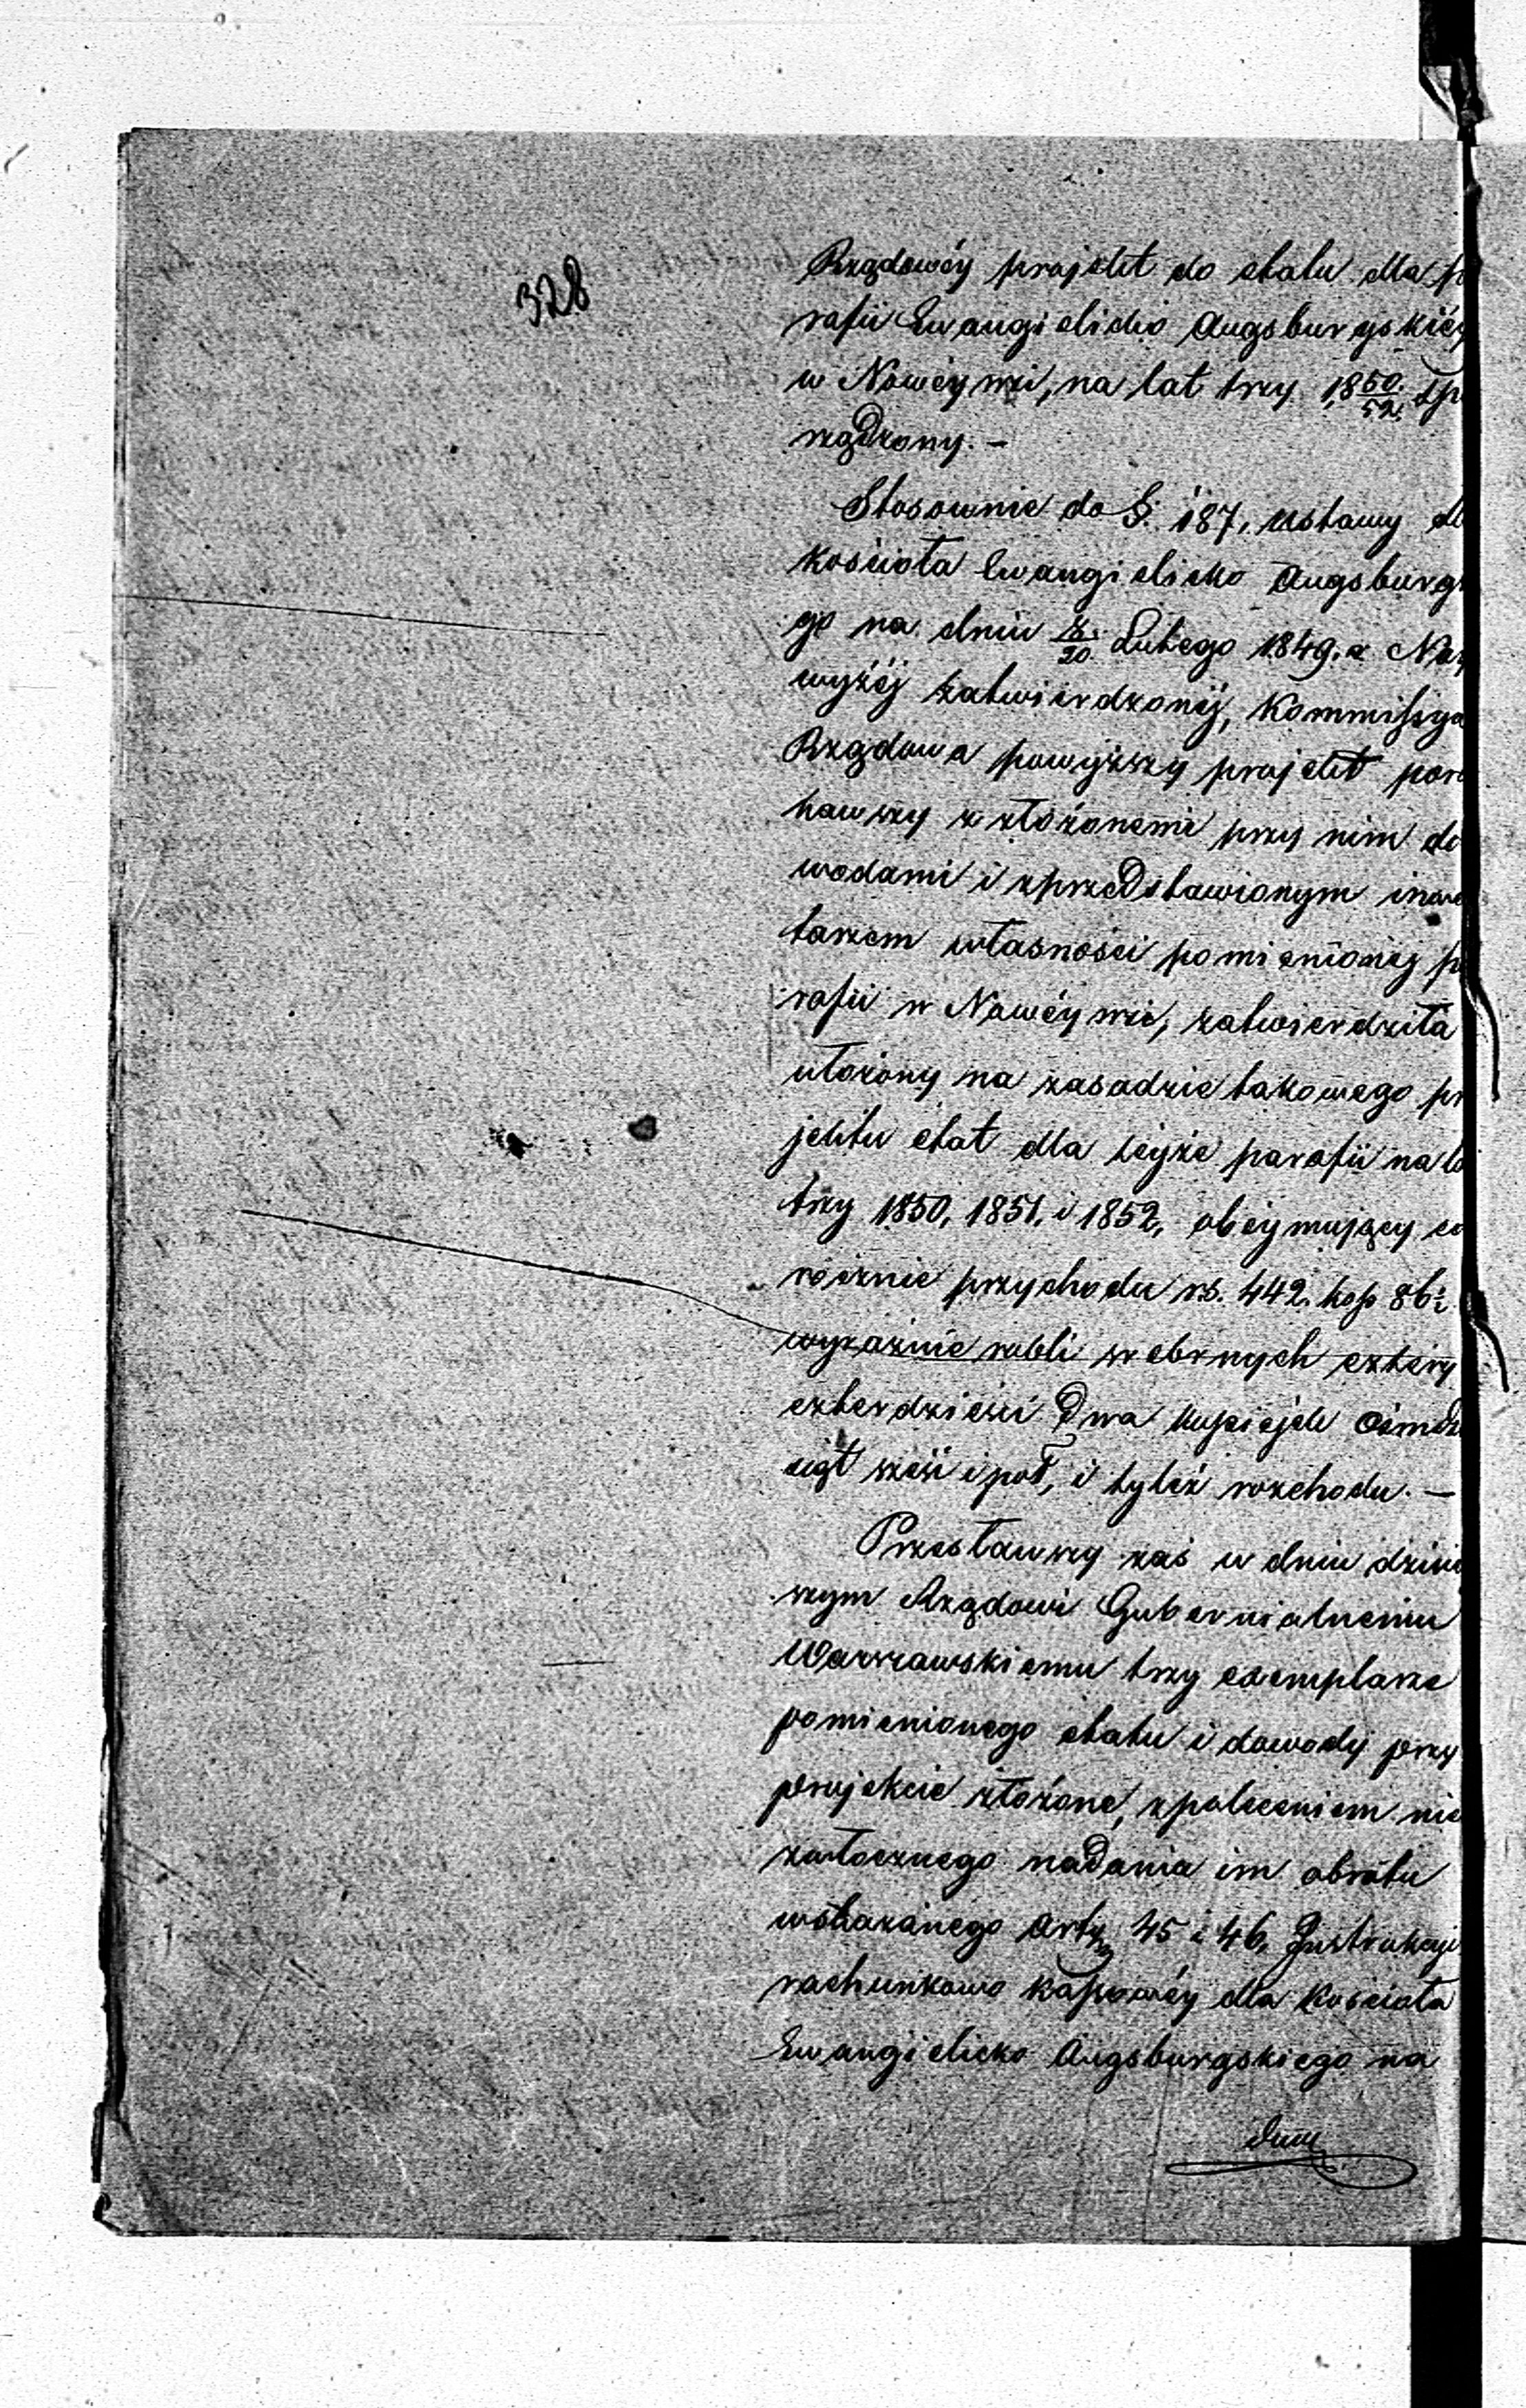 328
Rządowéy projekt do etatu dla p
rafii Ewangielicko Augsburgskiéy
w Nowéywsi, na lat trzy 1850/52. sp
rządzony. —
Stosownie do §. 187. ustawy dl
kościoła Ewangielicko Augsburgs
go na dniu 8/20 Lutego 1849. r. Nay
wyżéj zatwierdzonéj, Kommissya
Rządowa powyższy projekt poró
nawszy z złożonemi przy nim do
wodami i z przedstawionym inwe
tarzem własności pomienionéj p
rafii w Nowéywsi, zatwierdziła
ułożony na zasadzie takowego pr
jektu etat dla téyże parafii na la
trzy 1850, 1851, i 1852, obéymujący co
rocznie przychodu rs. 442. kop 86½
wyraźnie rubli srebrnych cztéry
czterdzieści Dwa kopiejek Ośmdz
siąt sześć i pół, i tyleż rozchodu. —
Przesławszy zaś w dniu dzisie
szym Rządowi Gubernialnemu
Warszawskiemu trzy exemplarze
pomienionego etatu i dowody przy
projekcie złożone, z poleceniem nie
zwłocznego nadania im obrotu
wskazanego Art. 45 i 46, Instrukcyi
rachunkowo kassowéy dla Kościoła
Ewangielicko Augsburgskiego na